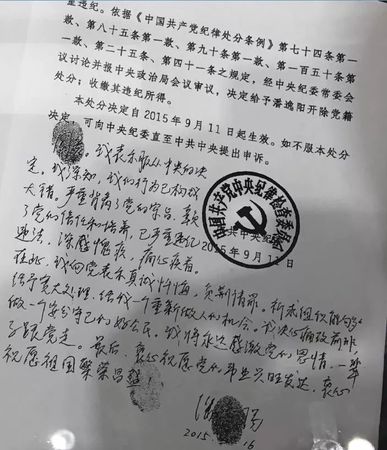 重违纪。依据《中国共产党纪律处分条例》第七十四条第一
款、第八十五条第一款、第九十条第一款、第一百五十条第
一款、第二十五条、第四十一条之规定，经中央纪委常委会
议讨论并报中央政治局会议审议，决定给予潘逸阳开除党籍
处分；收缴其违纪所得。
本处分决定自2015年9月11日起生效。如不服本处分
决定，可向中央纪委直至中共中央提出申诉。
我表示服从中央的决
定，我深知，我的行为已构成
大错。严重背离了党的宗旨，辜负
了党的信任和培养，已严重违纪
违法，深感愧疚，痛心疾首。
中国共产党中央纪律检查委员会
中共中央纪
2015年9月11日
在此，我向党表示真诚忏悔，负荆请罪。祈求组织能够
给予宽大处理，给我一个重新做人的机会。我决心痛改前非，
做一个安分守己的好公民。我将永远感激党的恩情，一辈
子跟党走。最后，衷心祝愿党的事业兴旺发达，衷心
祝愿祖国繁荣昌盛！
潘 阳
2015 16